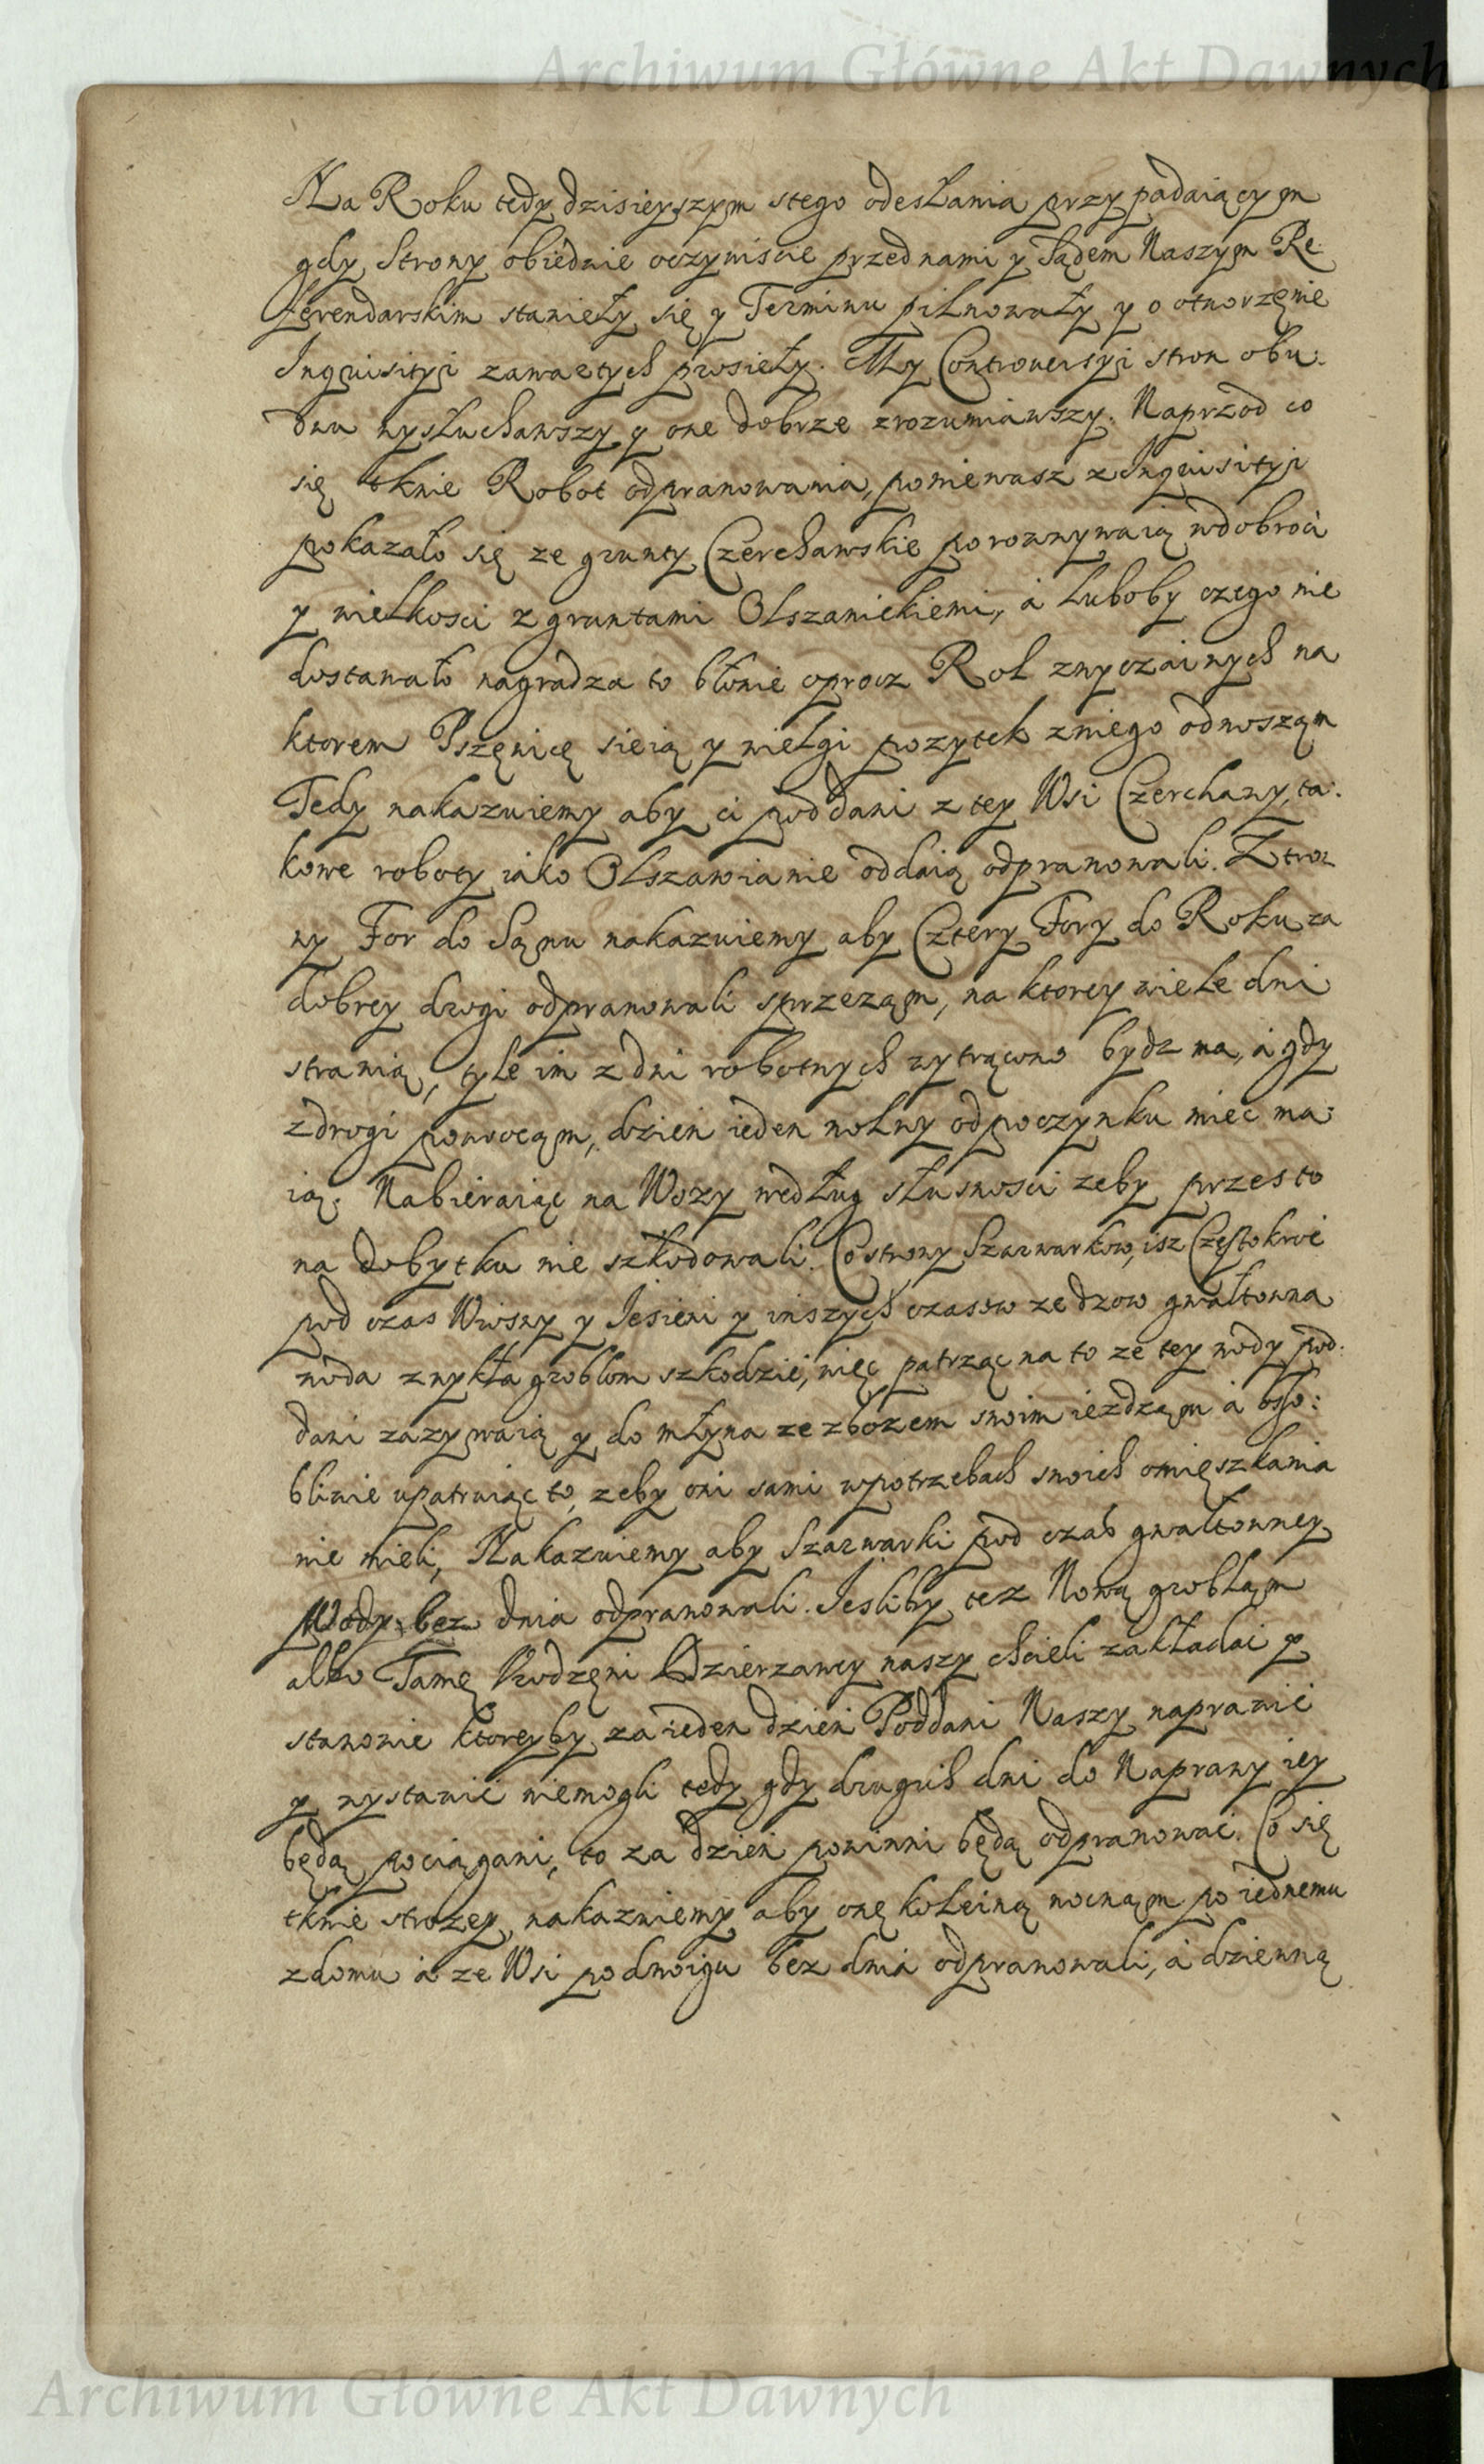 Archiwum Główne Akt Dawnych
Na Roku tedy dzisieyszym stego odesłania przypadaiącym
gdy Strony obiedwie oczywiscie przednami y Sądem Naszym Re:
ferendarskim stanieły się y Terminu pilnowały y o otworzęnie
Inquisityi zawartych prosieły. My Controuersyi stron obu:
dwu wysłuchawszy y one dobrze zrozumiawszy. Naprzod co
się tknie Robot odprawowania, poniewasz z Inquisityi
pokazało się ze grunty Czerchawskie porownywaią wdobroci
y wielkosci z gruntami Olszanickiemi, a luboby czego nie
dostawało nagradza to błonie oprocz Rol zwyczainych na
ktorem Pszęnicę sieią y wielgi pozytek zniego odnoszą
Tedy nakazuiemy aby ci poddani z tey Wsi Czerchawy, ta:
kowe roboty iako Olszawianie oddaią odprawowali. Ztro:
ny For do Sąnu nakazuiemy aby Cztery Fory do Roku za
dobrey drogi odprawowali sprzezą, na ktorey wiele dni
strawią, tyle im z dni robotnych wytrącono bydz ma, a gdy
zdrogi powrocą, dzien ieden wolny odpoczynku miec ma:
ią. Nabieraiąc na Wozy według słusnosci zeby przes to
na dobytku nie szkodowali. Co strony Szarwarkow, isz Częstokroc
pod czas Wiosny y Iesieni y inszych czasow ze dzow gwałtowna
woda zwykła groblom szkodzić, więc patrząc na to ze tey wody pod:
dani zazywaią y do młyna ze zbozem swoim iezdzą a oso:
bliwie upatruiąc to, zeby oni sami wpotrzebach swoich omięszkania
nie mieli, Nakazuiemy aby Szarwarki pod czas gwałtowney
Wody bez dnia odprawowali. Iesliby tez Nową groblą
albo Tamę Vrodzęni Dzierzawcy naszy chcieli zakładac y
stanowic ktoreyby za ieden dzien Poddani Naszy naprawic
y wystawic niemogli tedy gdy drugich dni do Naprawy iey
będą pociągani, to za dzien powinni będą odprawowac. Co się
tknie strozey, nakazuiemy aby onę koleiną nocną po iednemu
zdomu a ze Wsi po dwoigu bez dnia odprawowali, a dzienną
Archiwum Główne Akt Dawnych